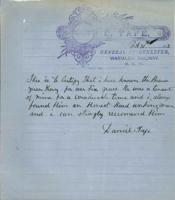 E. TAPE,
GENERAL STOREKEEPER,
WARIALDA RAILWAY,
N. S. W.
This is to Certify that i have known the Bearer
over six years He was a tenant
of mine for a considerable time and i always
found Him an Honest Hard working man
and i can strongly recommend Him
Daniel Tape